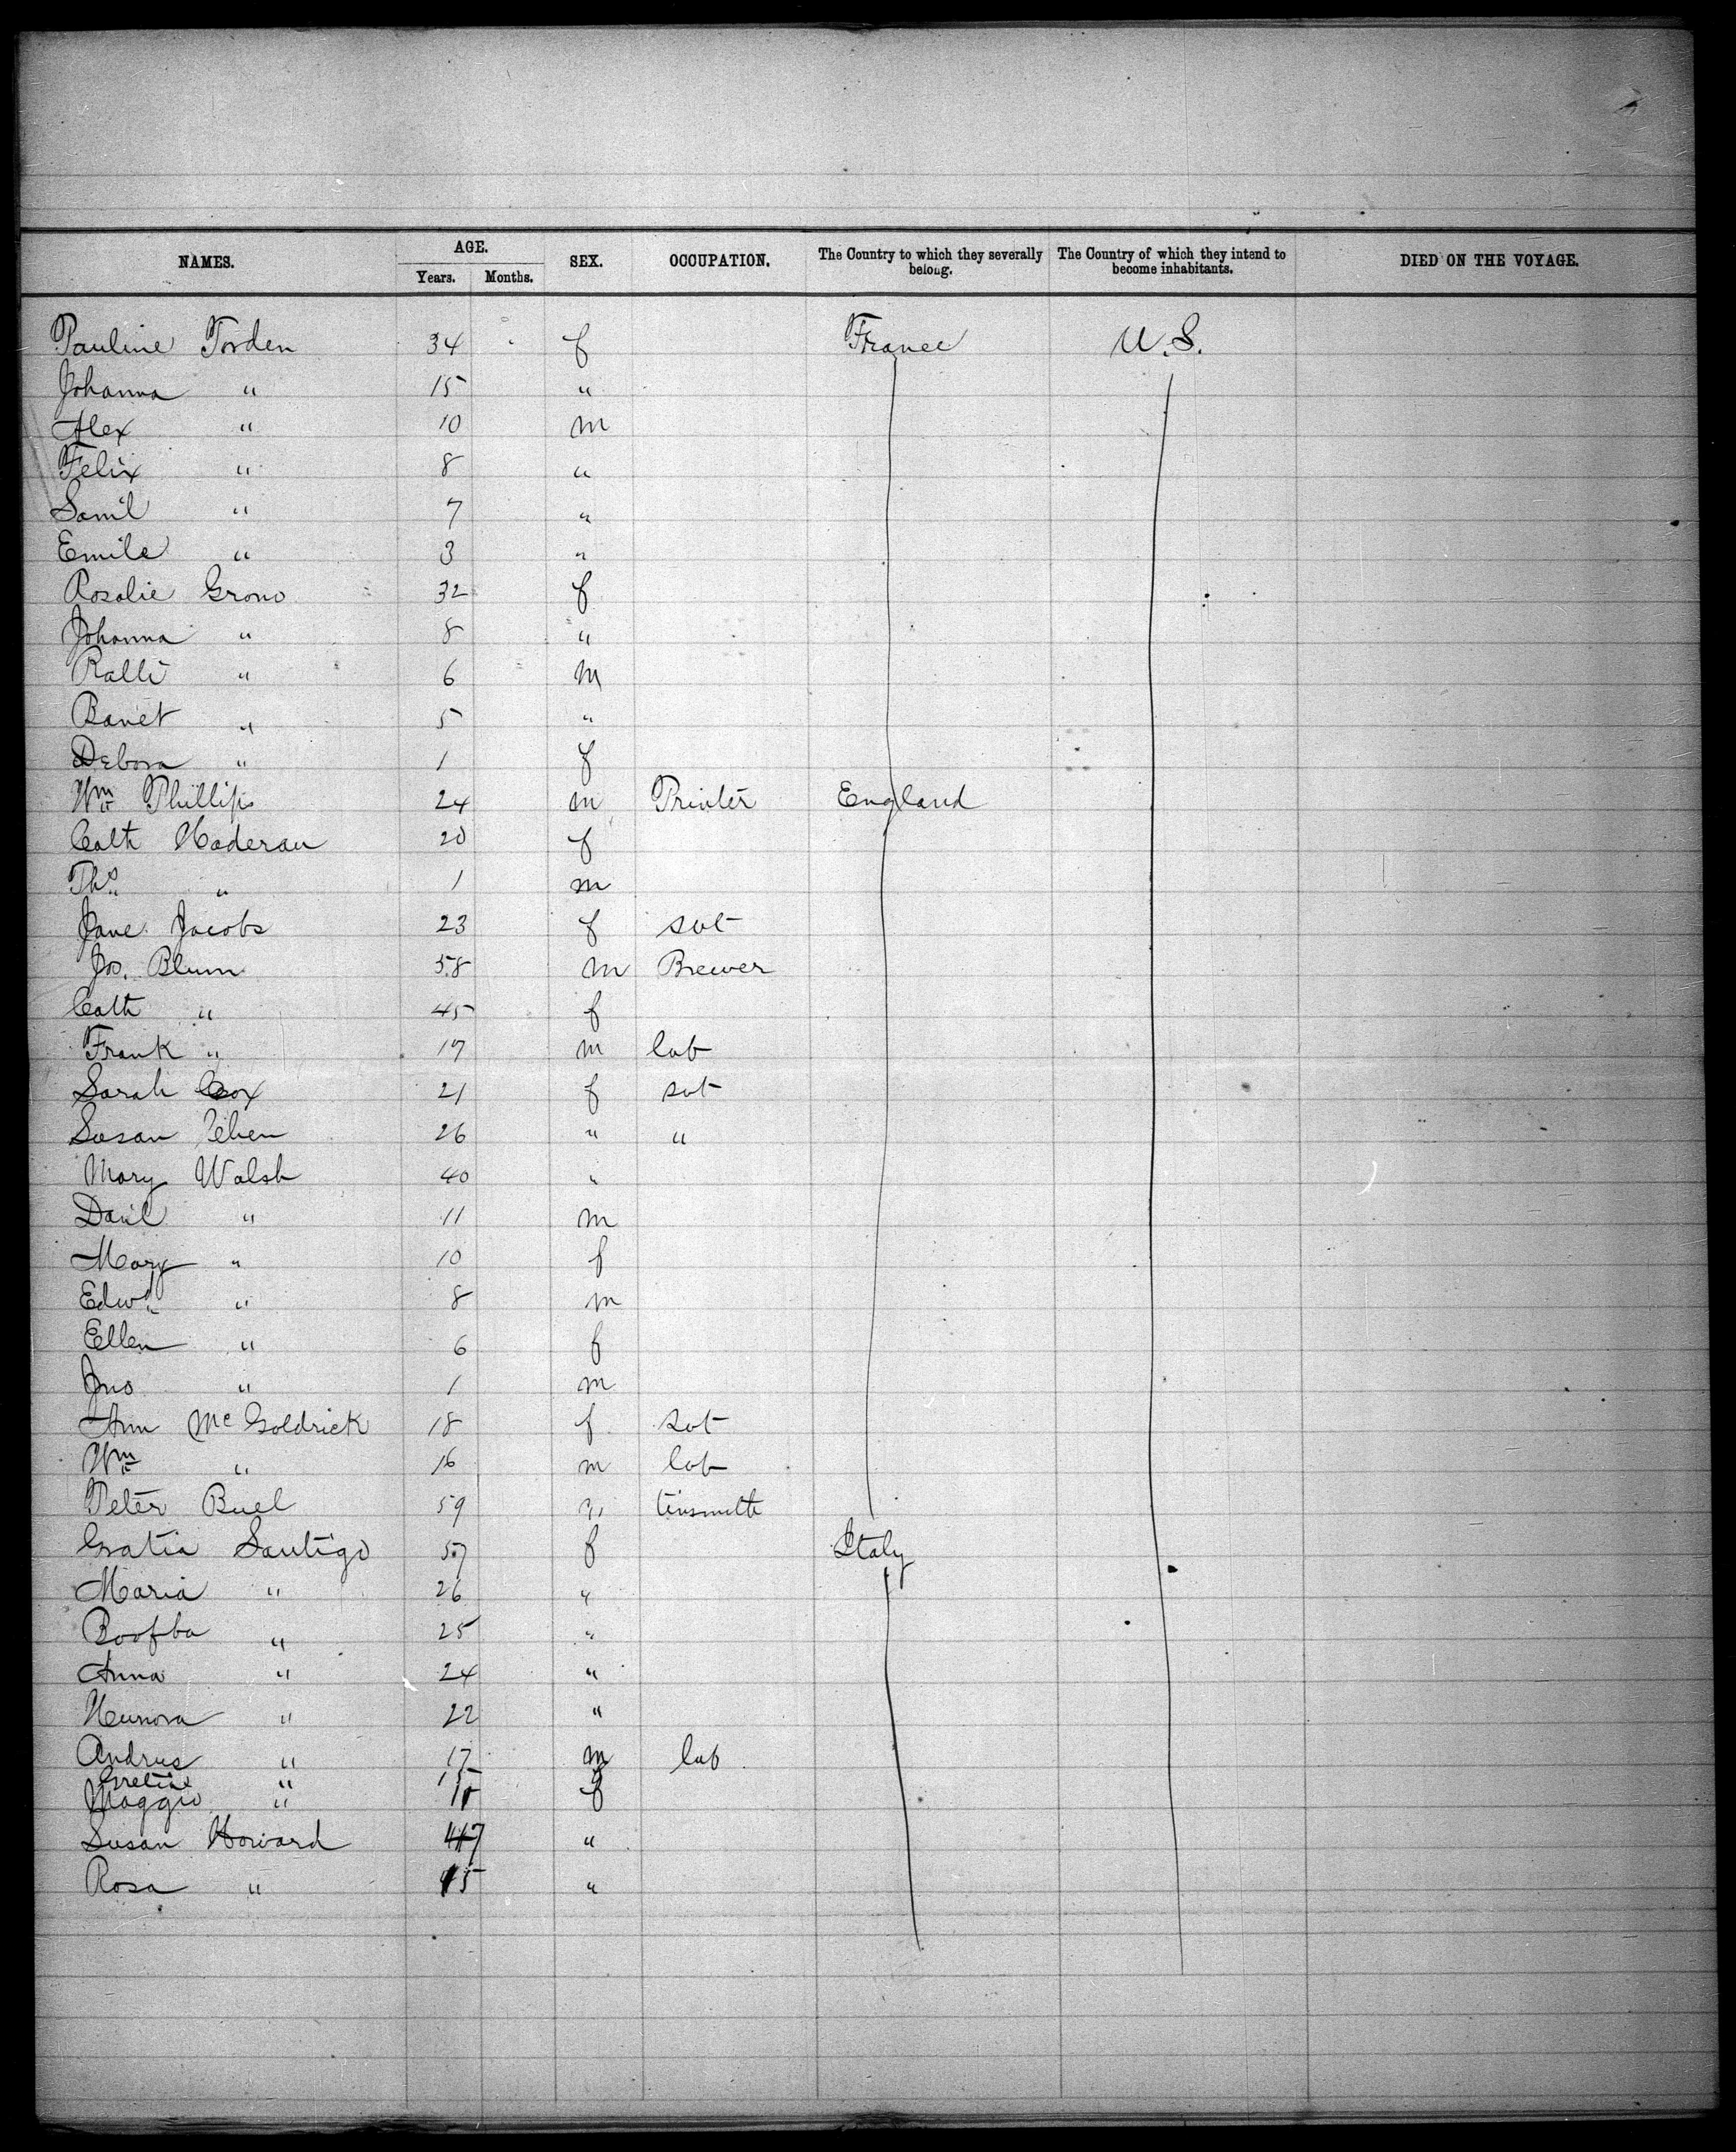 NAMES. AGE. SEX. OCCUPATION. The Country to which they severally belong. The Country of which they intend to become inhabitants. DIED ON THE VOYAGE.
Years. Months.
Pauline Torden 34 f France U.S.
Johanna " 15 "
Alex " 10 m
Felix " 8 "
Saml " 7 "
Emile " 3 "
Rosalie Grono 32 f
Johanna " 8 "
Ralli " 6 m
Banet " 5 "
Debora " 1 f
Wm Phillips 24 m Printer England
Cath Haderan 20 f
Ths " 1 m
Jane Jacobs 23 f svt
Jos. Blum 58 m Brewer
Cath " 45 f
Frank " 17 m lab
Sarah Cox 21 f svt
Susan 26 " "
Mary Walsh 40 "
Danl " 11 m
Mary " 10 f
Edwd " 8 m
Ellen " 6 f
Jno " 1 m
Ann McGoldrick 18 f svt
Wm " 16 m lab
Peter Buel 59 m tinsmith
Gratia Santigo 57 f Italy
Maria " 26 "
" 25 "
Anna " 24 "
" 22 "
Andrus " 17 m lab
" 15 f
Maggio " 11 f
Susan Howard 47 "
Rosa " 15 "